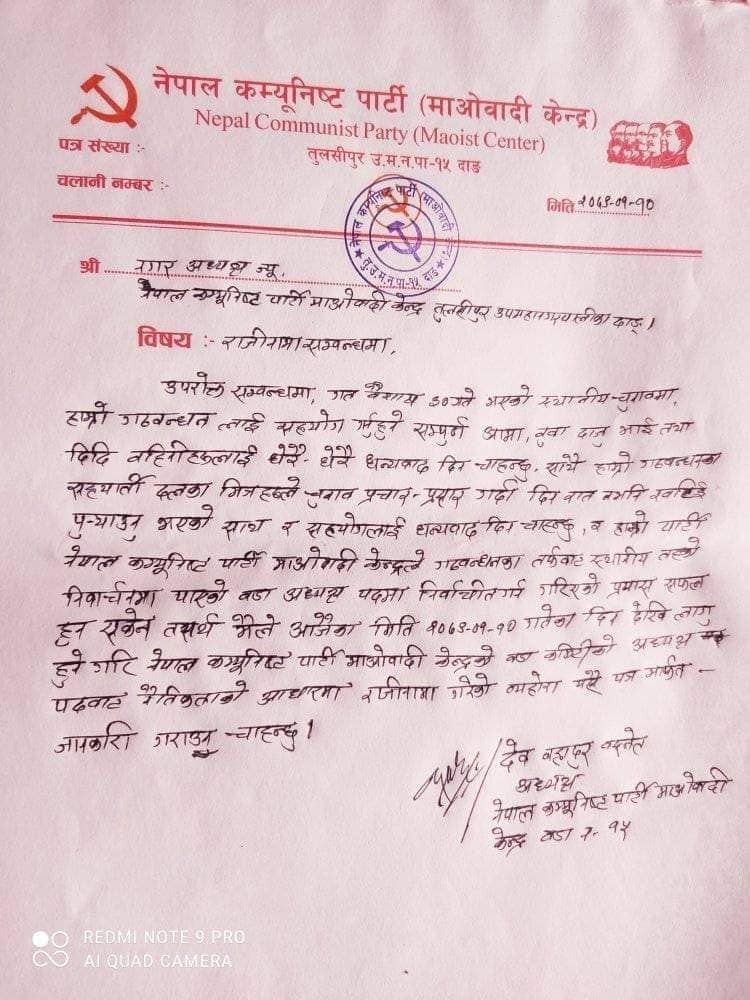 नेपाल कम्यूनिष्ट पार्टी (माओवादी केन्द्र)
Nepal Communist Party (Maoist Center)
पत्र संख्या :-
तुलसीपुर उ.म.न.पा-१५ दाङ
चलानी नम्बर :-
मिति २०७९-०२-१०
नेपाल कम्युनिष्ट पार्टी (माओवादी केन्द्र)
तु.उ.म.न.पा.-१५ दाङ
श्री नगर अध्यक्ष ज्यू,
नेपाल कम्यूनिष्ट पार्टी माओवादी केन्द्र तुलसीपुर उपमहानगरपालिका दाङ्ग।
विषय :- राजीनामा सम्बन्धमा,
उपरोक्त सम्बन्धमा, गत वैशाख ३० गते भएको स्थानीय चुनावमा,
हाम्रो गठबन्धन लाई सहयोग गर्नुहुने सम्पुर्ण आमा, बुवा दाजु भाई तथा
दिदि बहिनीहरूलाई धेरै-धेरै धन्यवाद दिन चाहन्छु, साथै हाम्रो गठबन्धनका
सहयात्री दलका मित्रहरूले चुनाव प्रचार-प्रसार गर्दा दिन रात नभनि
पुऱ्याउनु भएको साथ र सहयोगलाई धन्यवाद दिन चाहन्छु, र हाम्रो पार्टी
नेपाल कम्यूनिष्ट पार्टी माओवादी केन्द्रले गठबन्धनका तर्फबाट स्थानीय तहको
निर्वाचनमा पाएको वडा अध्यक्ष पदमा निर्वाचीत गर्न गरिएको प्रयास सफल
हुन सकेन तसर्थ मैले आजैका मिति २०७९-०२-१० गतेका दिन देखि लागु
हुने गरि नेपाल कम्यूनिष्ट पार्टी माओवादी केन्द्रको वडा कमिटीको अध्यक्ष
पदबाट नैतिकताको आधारमा राजीनामा गरेको व्यहोरा यसै पत्र मार्फत
जानकारी गराउन चाहन्छु।
देव बहादुर बस्नेत
अध्यक्ष
नेपाल कम्यूनिष्ट पार्टी माओवादी
केन्द्र वडा नं- १५
REDMI NOTE 9 PRO
AI QUAD CAMERA